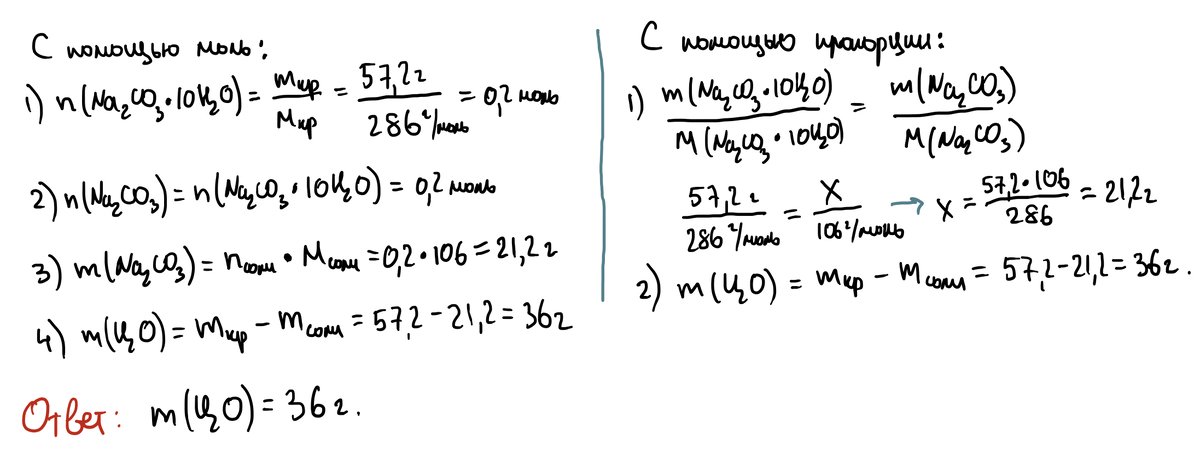 С помощью моль:
1) n(Na₂CO₃·10H₂O) = mкр / Mкр = 57,2 г / 286 г/моль = 0,2 моль
2) n(Na₂CO₃) = n(Na₂CO₃·10H₂O) = 0,2 моль
3) m(Na₂CO₃) = nсоли · Mсоли = 0,2 · 106 = 21,2 г
4) m(H₂O) = mкр − mсоли = 57,2 − 21,2 = 36 г
Ответ: m(H₂O) = 36 г.
С помощью пропорции:
1) m(Na₂CO₃·10H₂O) / M(Na₂CO₃·10H₂O) = m(Na₂CO₃) / M(Na₂CO₃)
57,2 г / 286 г/моль = X / 106 г/моль → X = 57,2·106 / 286 = 21,2 г
2) m(H₂O) = mкр − mсоли = 57,2 − 21,2 = 36 г.